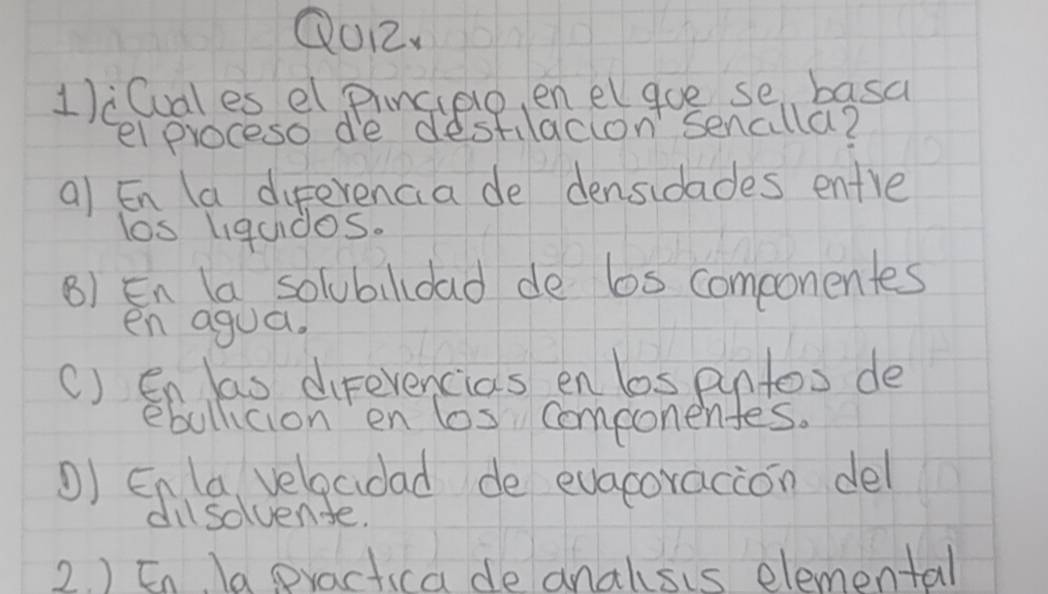 Quiz.
1) ¿Cual es el principio, en el que se basa
el proceso de destilacion sencilla?
a) En la diferencia de densidades entre
los liquidos.
B) En la solubilidad de los componentes
en agua.
C) En las diferencias en los puntos de
ebullicion en los componentes.
D) En la velocidad de evaporación del
dilsolvente.
2.) En la practica de analisis elemental